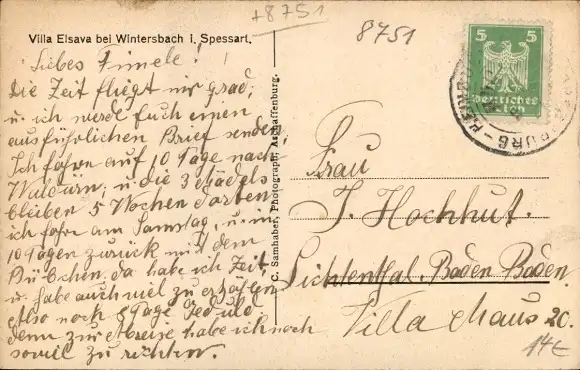 +8751
8751
Villa Elsava bei Wintersbach i. Spessart.
Liebes Fimele!
Die Zeit fliegt nur grad;
u. ich werde Euch einen
ausführlichen Brief senden,
Ich fahre auf 10 Tage nach
Waldürn; u. die 3 Mädels
bleiben 5 Wochen dorten
ich fahre am Samstag, u. in
10 Tagen zurück mit dem
Bübchen. da habe ich Zeit,
u. habe auch viel zu erzählen
Also noch 8 Tage Geduld
denn zur Abreise habe ich noch
soviel zu richten.
C. Samhaber, Photograph, Aschaffenburg.
5 5
Deutsches
Reich
BURG
Frau
J. Hochhut.
Lichtenthal, Baden Baden.
Villa Maus 20.
14€